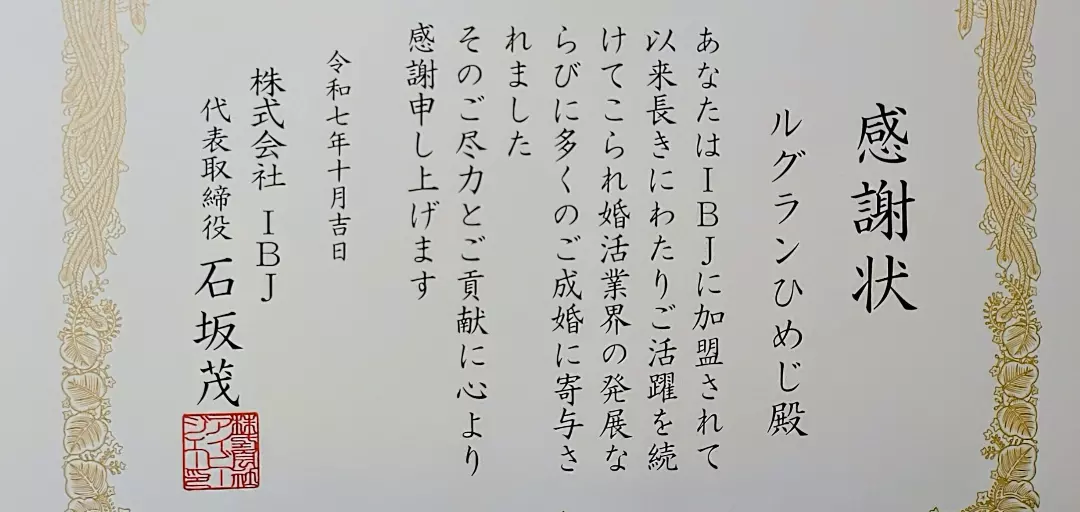 感謝状
ルグランひめじ殿
あなたはIBJに加盟されて
以来長きにわたりご活躍を続
けてこられ婚活業界の発展な
らびに多くのご成婚に寄与さ
れました
そのご尽力とご貢献に心より
感謝申し上げます
令和七年十月吉日
株式会社 IBJ
代表取締役 石坂茂